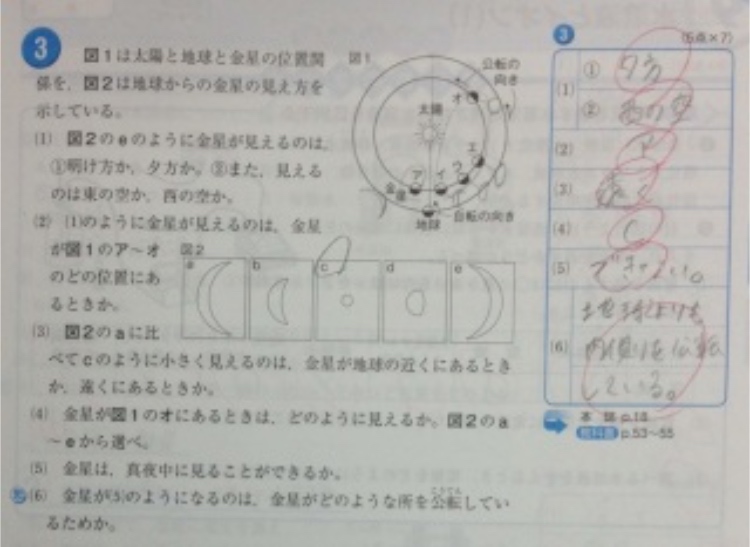 3
図1は太陽と地球と金星の位置関
係を,図2は地球からの金星の見え方を
示している。
(1) 図2のeのように金星が見えるのは,
①明け方か,夕方か。②また,見える
のは東の空か,西の空か。
(2) (1)のように金星が見えるのは,金星
が図1のア〜オ
のどの位置にあ
るときか。
(3) 図2のaに比
べてcのように小さく見えるのは,金星が地球の近くにあるとき
か,遠くにあるときか。
(4) 金星が図1のオにあるときは,どのように見えるか。図2のa
〜eから選べ。
(5) 金星は,真夜中に見ることができるか。
(6) 金星が(5)のようになるのは,金星がどのような所を公転してい
こうてん
るためか。
図1
公転の
向き
オ
太陽
エ
ア
イ
金星
地球
自転の向き
図2
a
b
c
d
e
3
(5点×7)
(1)
① 夕方
② 西の空
(2)
(3) 遠く
(4) c
(5) できない。
(6)
地球よりも
内側を公転
している。
本冊 p.18
教科書 p.53〜55